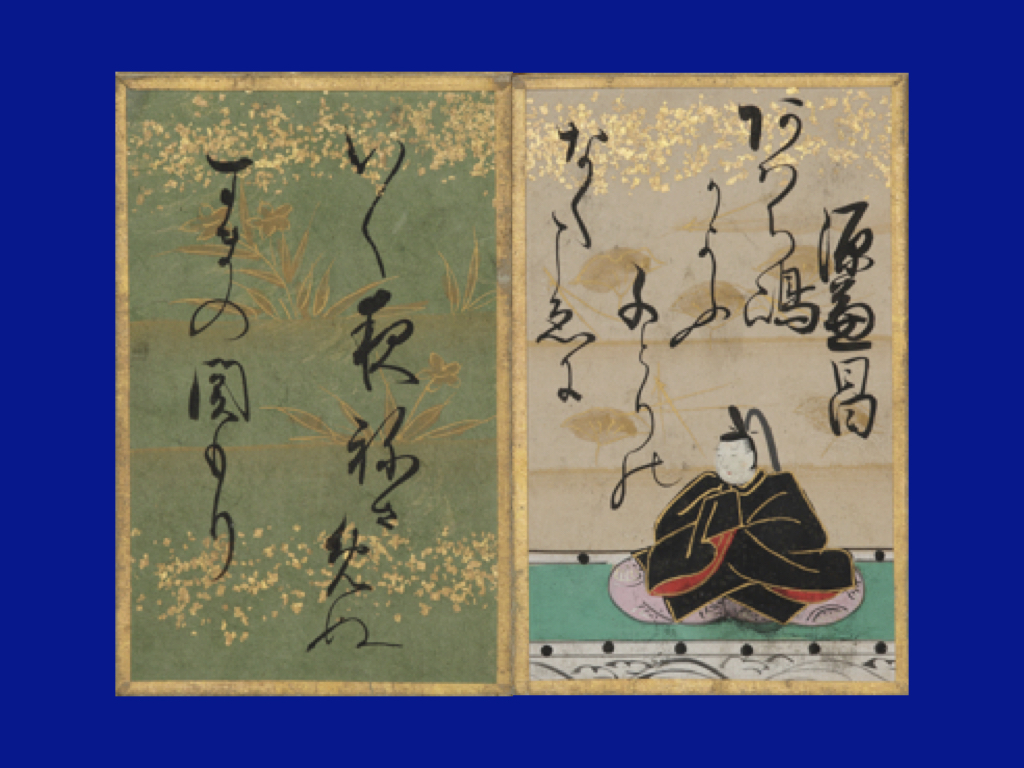 源兼昌
あはち嶋
かよふ
千とりの
なくこゑに
いく夜ねさめぬ
すまの関もり